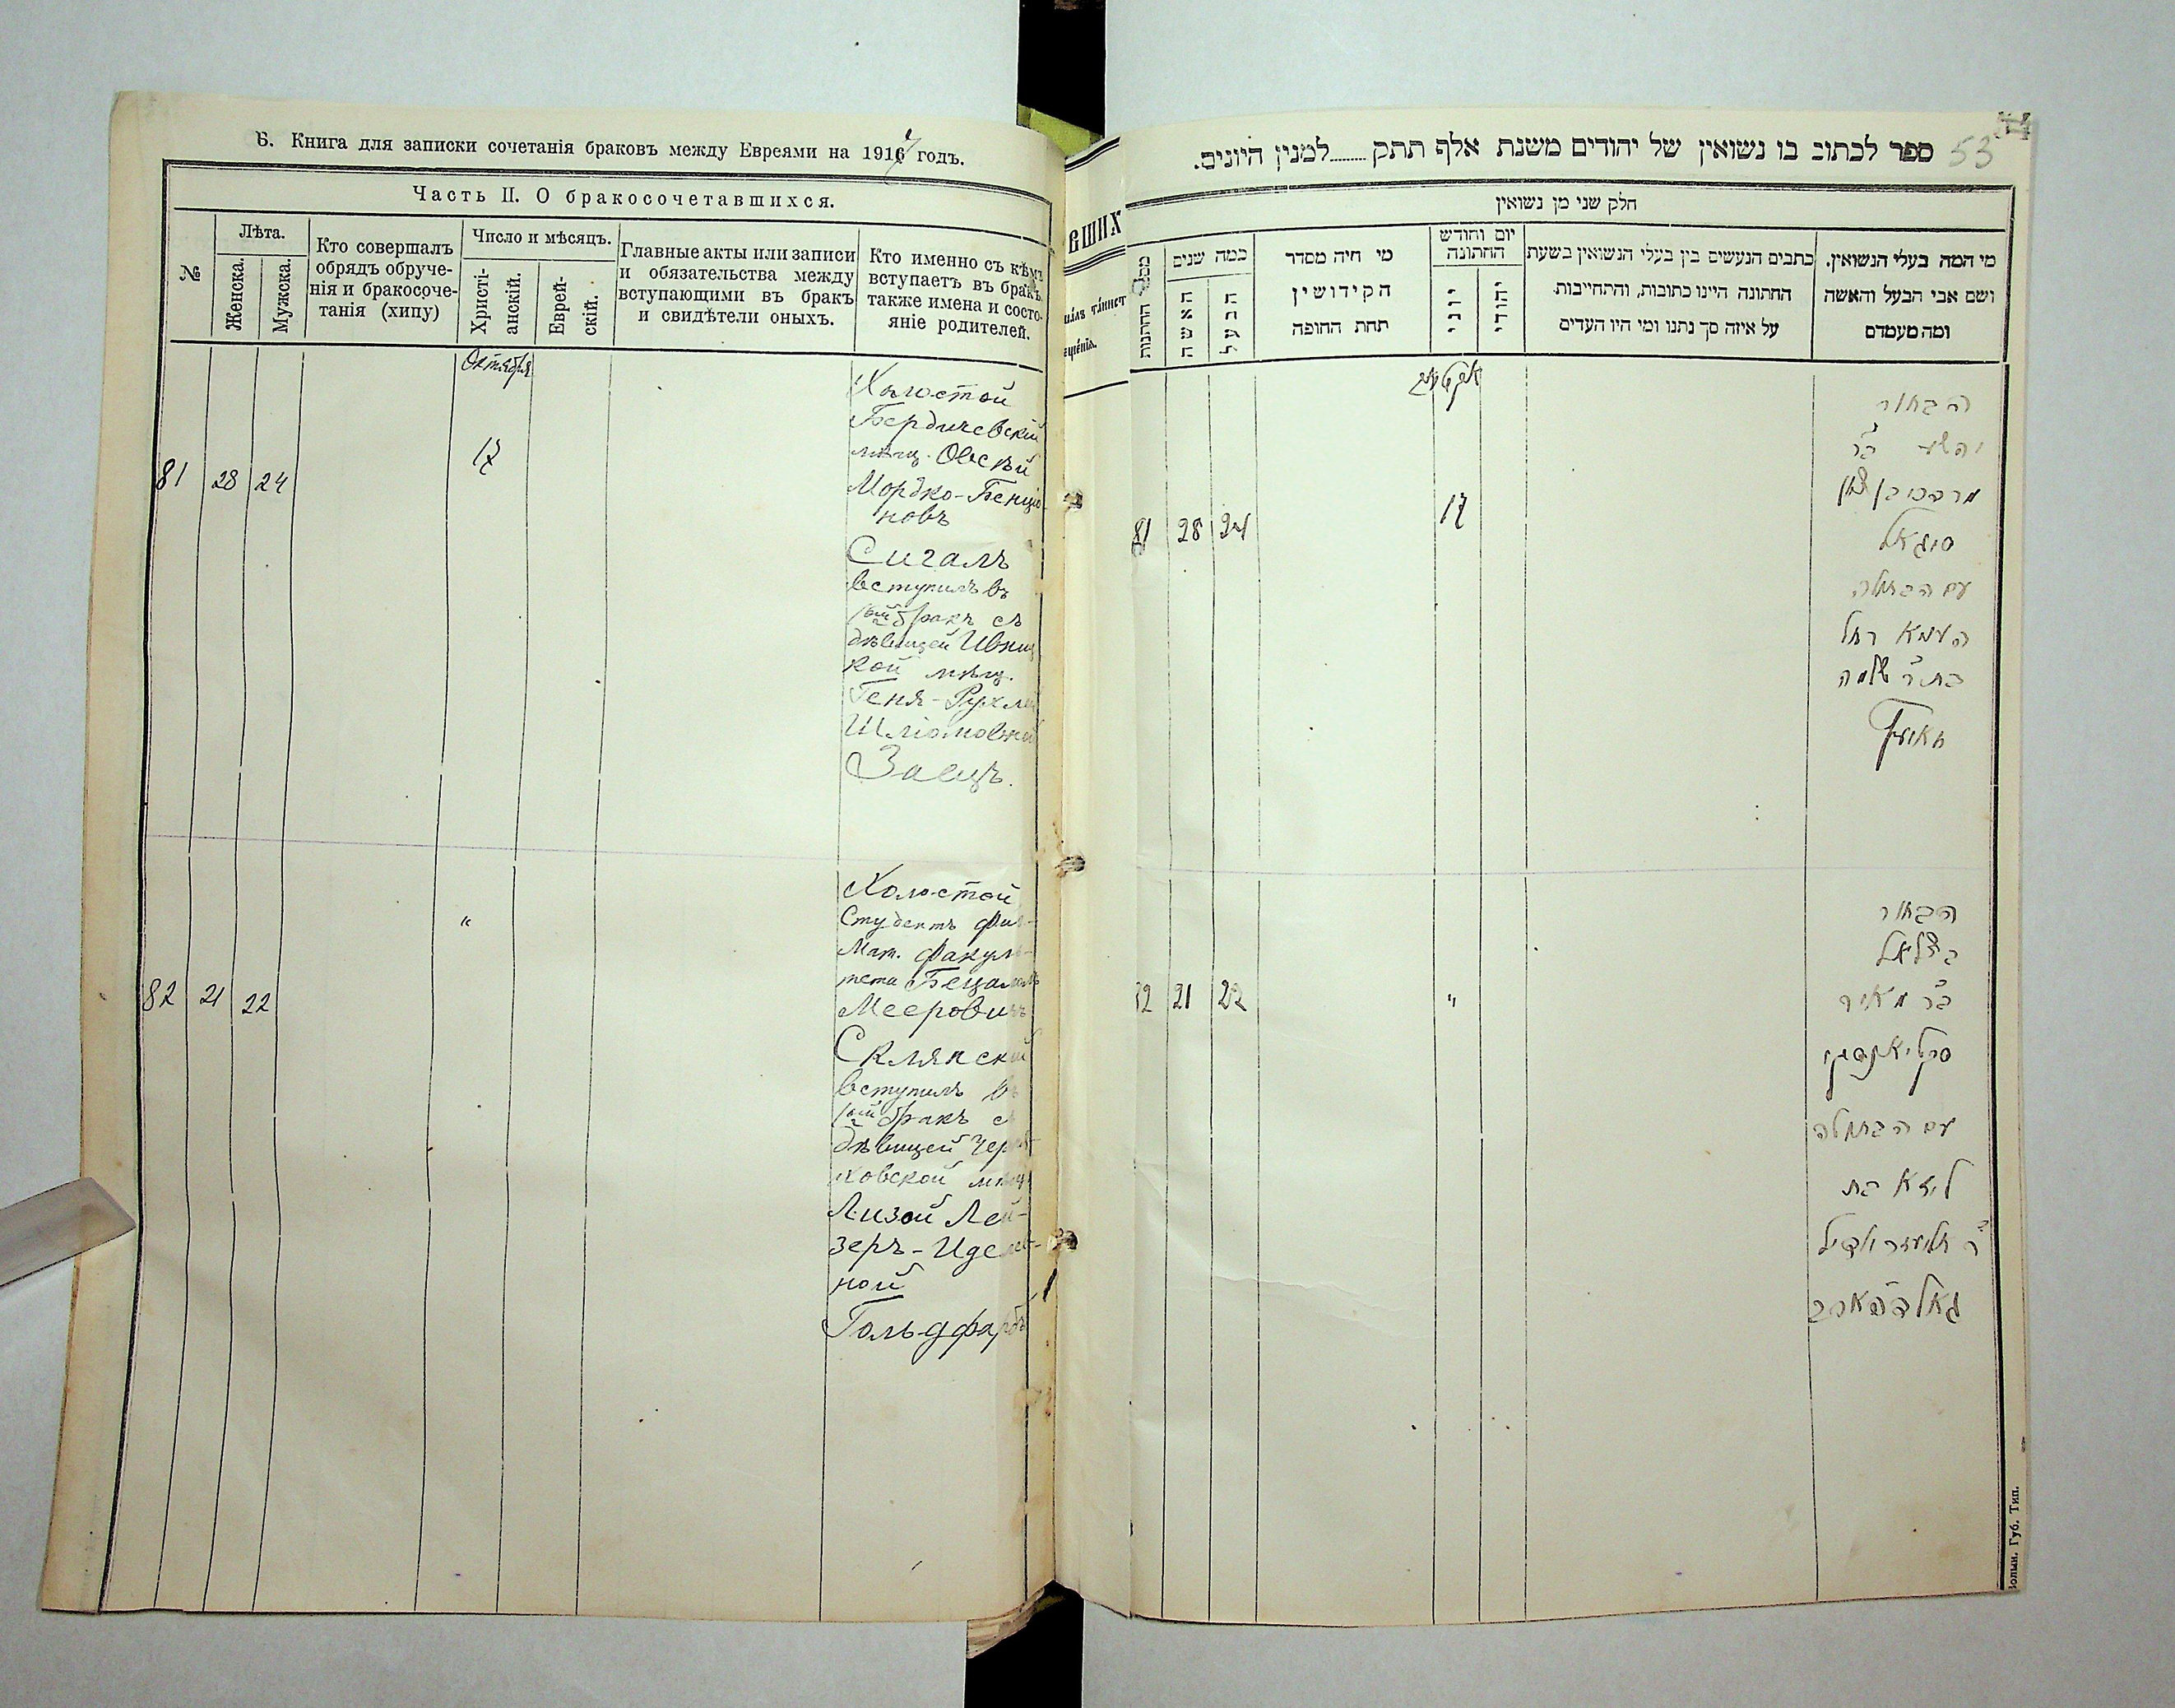 Б. Книга для записки сочетанія браковъ между Евреями на 1917 годъ.
Часть II. О бракосочетавшихся.
№
Лѣта.
Женска.
Мужска.
Кто совершалъ
обрядъ обруче-
нія и бракосоче-
танія (хипу)
Число и мѣсяцъ.
Христі-
анскій.
Еврей-
скій.
Главные акты или записи
и обязательства между
вступающими въ бракъ
и свидѣтели оныхъ.
Кто именно съ кѣмъ
вступаетъ въ бракъ
также имена и состо-
яніе родителей.
Октября
81 28 24
17
Холостой
Бердичевскій
мѣщ. Овсѣй
Мордко-Бенціо-
новъ
Сигалъ
вступилъ въ
1ый бракъ съ
дѣвицей Ивниц
кой мѣщ.
Геня-Рухлей
Шліомовной
Заецъ.
82 21 22
"
Холостой
Студентъ физ-
Мат. факуль-
тета Бецалель
Мееровичъ
Склянскій
вступилъ въ
1ый бракъ съ
дѣвицей Черня-
ховской мѣщ.
Лизой Лей-
зеръ-Иделев-
ной
Гольдфарбъ
вших
53
ספר לכתוב בו נשואין של יהודים משנת אלף תתק........למנין היונים.
חלק שני מן נשואין
מספר החתונות
כמה שנים
האשה
הבעל
מי היה מסדר
הקידושין
תחת החופה
יום וחודש
החתונה
יוני
יהודי
כתבים הנעשים בין בעלי הנשואין בשעת
החתונה היינו כתובות, והתחייבות
על איזה סך נתנו ומי היו העדים
מי המה בעלי הנשואין.
ושם אבי הבעל והאשה
ומה מעמדם
81 28 24
17
הבחור
יהושע ב"ר
מרדכי בן ציון
סיגאל
עם הבתולה
העניא רחל
בת ר' שלמה
זאיעץ
82 21 22
"
הבחור
בצלאל
ב"ר מאיר
סקליאנסקי
עם הבתולה
ליזא בת
ר' אליעזר יודיל
גאלדפארב
Волын. Губ. Тип.